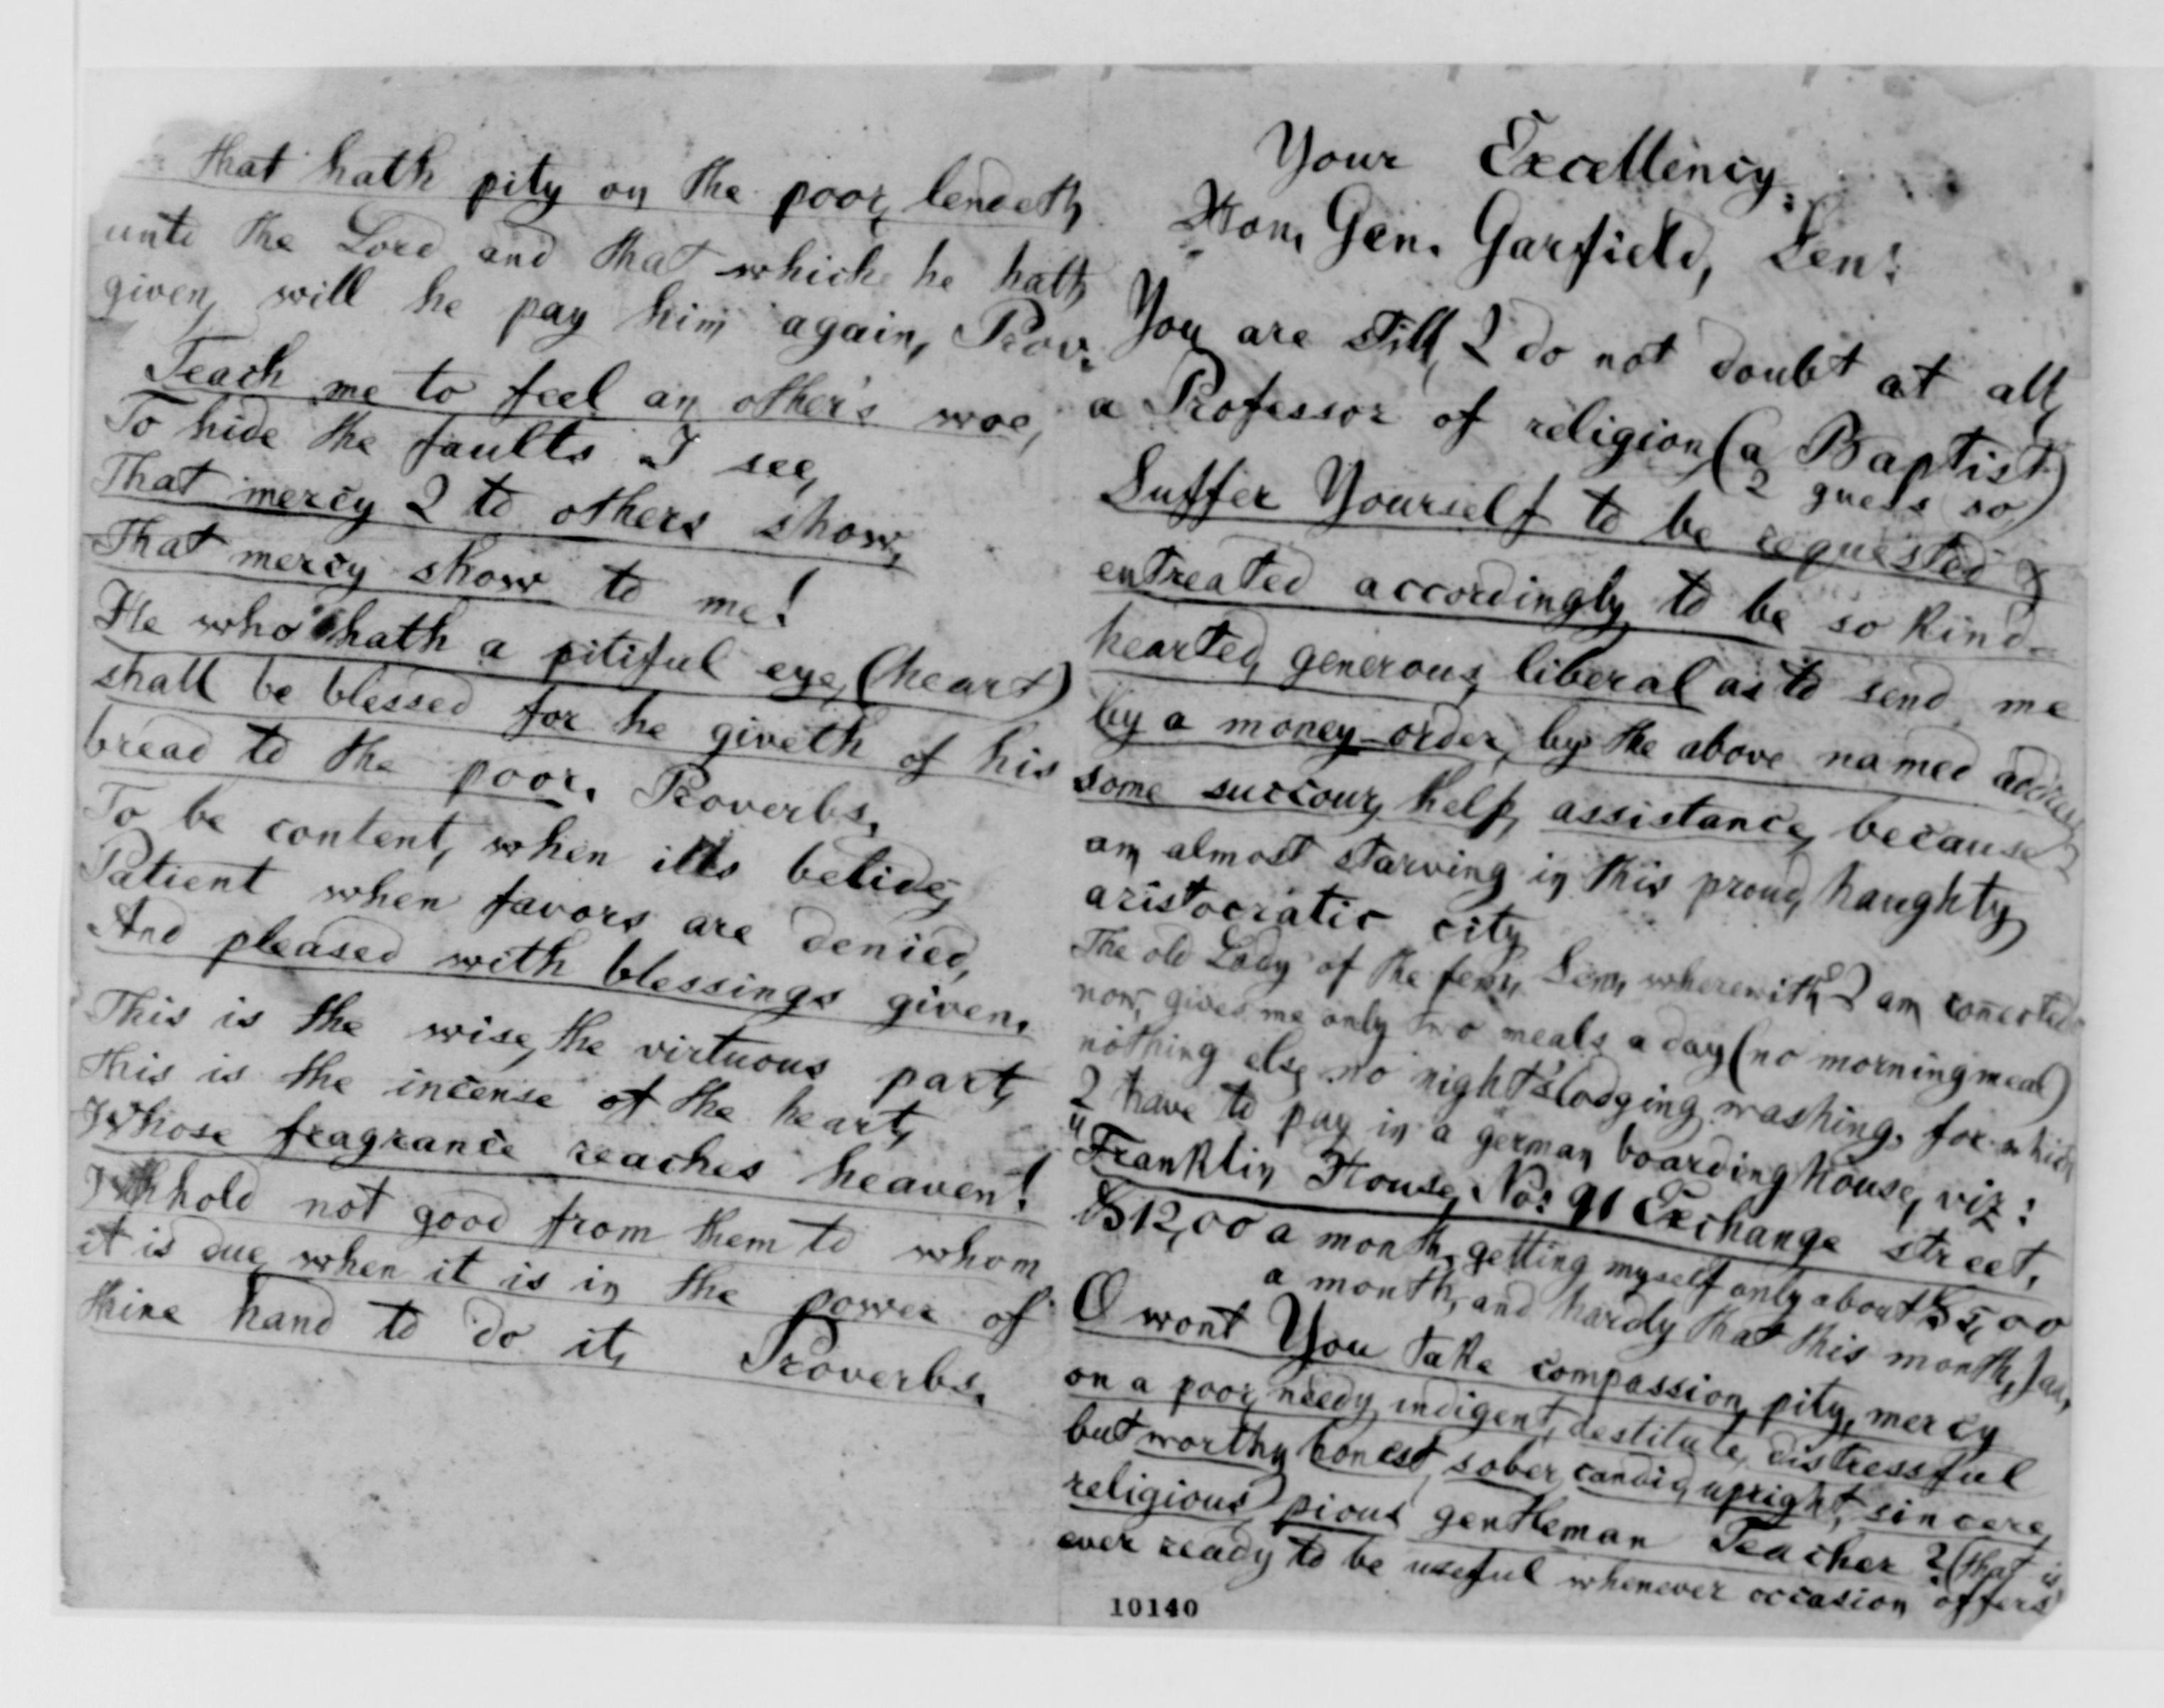 that hath pity on the poor, lendeth
unto the Lord and that which he hath
given, will he pay him again, Prov:
Teach me to feel an other's woe,
To hide the faults I see,
That mercy I to others show,
That mercy show to me!
He who hath a pitiful eye, (heart)
shall be blessed for he giveth of his
bread to the poor. Proverbs.
To be content, when ills betide,
Patient when favors are denied,
And pleased with blessings given.
This is the wise, the virtuous part,
this is the incense of the heart,
Whose fragrance reaches heaven!
Withhold not good from them to whom
it is due, when it is in the power of
thine hand to do it, Proverbs.
Your Excellency:
Hon. Gen. Garfield, Sen:
You are still, I do not doubt at all,
a Professor of religion, (a Baptist)
I guess so)
Suffer Yourself to be requested &
entreated accordingly, to be so kind-
hearted, generous, liberal as to send me
by a money-order, by the above named address
some succour, help, assistance, because I
am almost starving in this proud, haughty,
aristocratic city
The old Lady of the fem. Sem. wherewith I am conected
now, gives me only two meals a day (no morning meal)
nothing else, no night's lodging, washing, for which
I have to pay in a german boarding house, viz:
"Franklin House, No: 91 Exchange street,
$12,00 a month, getting myself only about $5,00
a month, and hardly that this month, Jan,
O wont You take compassion, pity, mercy
on a poor, needy, indigent, destitute, distressful
but worthy, honest, sober, candid, upright, sincere,
religious, pious gentleman Teacher? (that is
ever ready to be useful whenever occasion offers)
10140